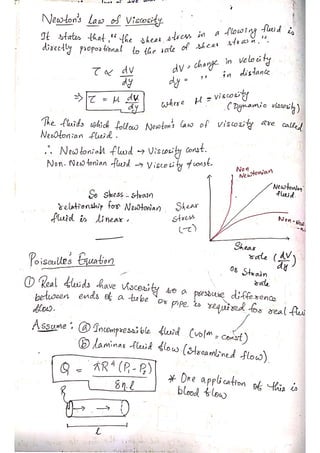 Newton's Law of Viscosity.
It states that, "the shear stress in a flowing fluid is
directly proportional to the rate of shear strain".
τ ∝ dV/dy
dV = change in velocity
dy = " in distance
⇒ τ = μ dV/dy
where μ = viscosity
(Dynamic viscosity)
The fluids which follow Newton's law of viscosity are called
Newtonian fluid.
∴ Newtonian fluid → Viscosity const.
Non. Newtonian fluid → Viscosity ≠ const.
Non
Newtonian
Newtonian
fluid
Non-New
So stress-strain
relationship for Newtonian
fluid is linear.
Shear
stress
(τ)
Shear
rate (dV/dy)
or strain
rate
Poisoulle's Equation
① Real fluids have viscosity so a pressure difference
between ends of a tube or pipe is required for real flui
flow.
Assume: ⓐ Incompressible fluid (volm = const)
ⓑ Laminar fluid flow (streamlined flow).
Q = πR⁴(P₁-P₂)/8ηl
* One application of this is
blood flow
l